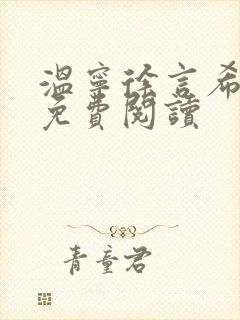 温寧徐言希
免費閱讀
青童君